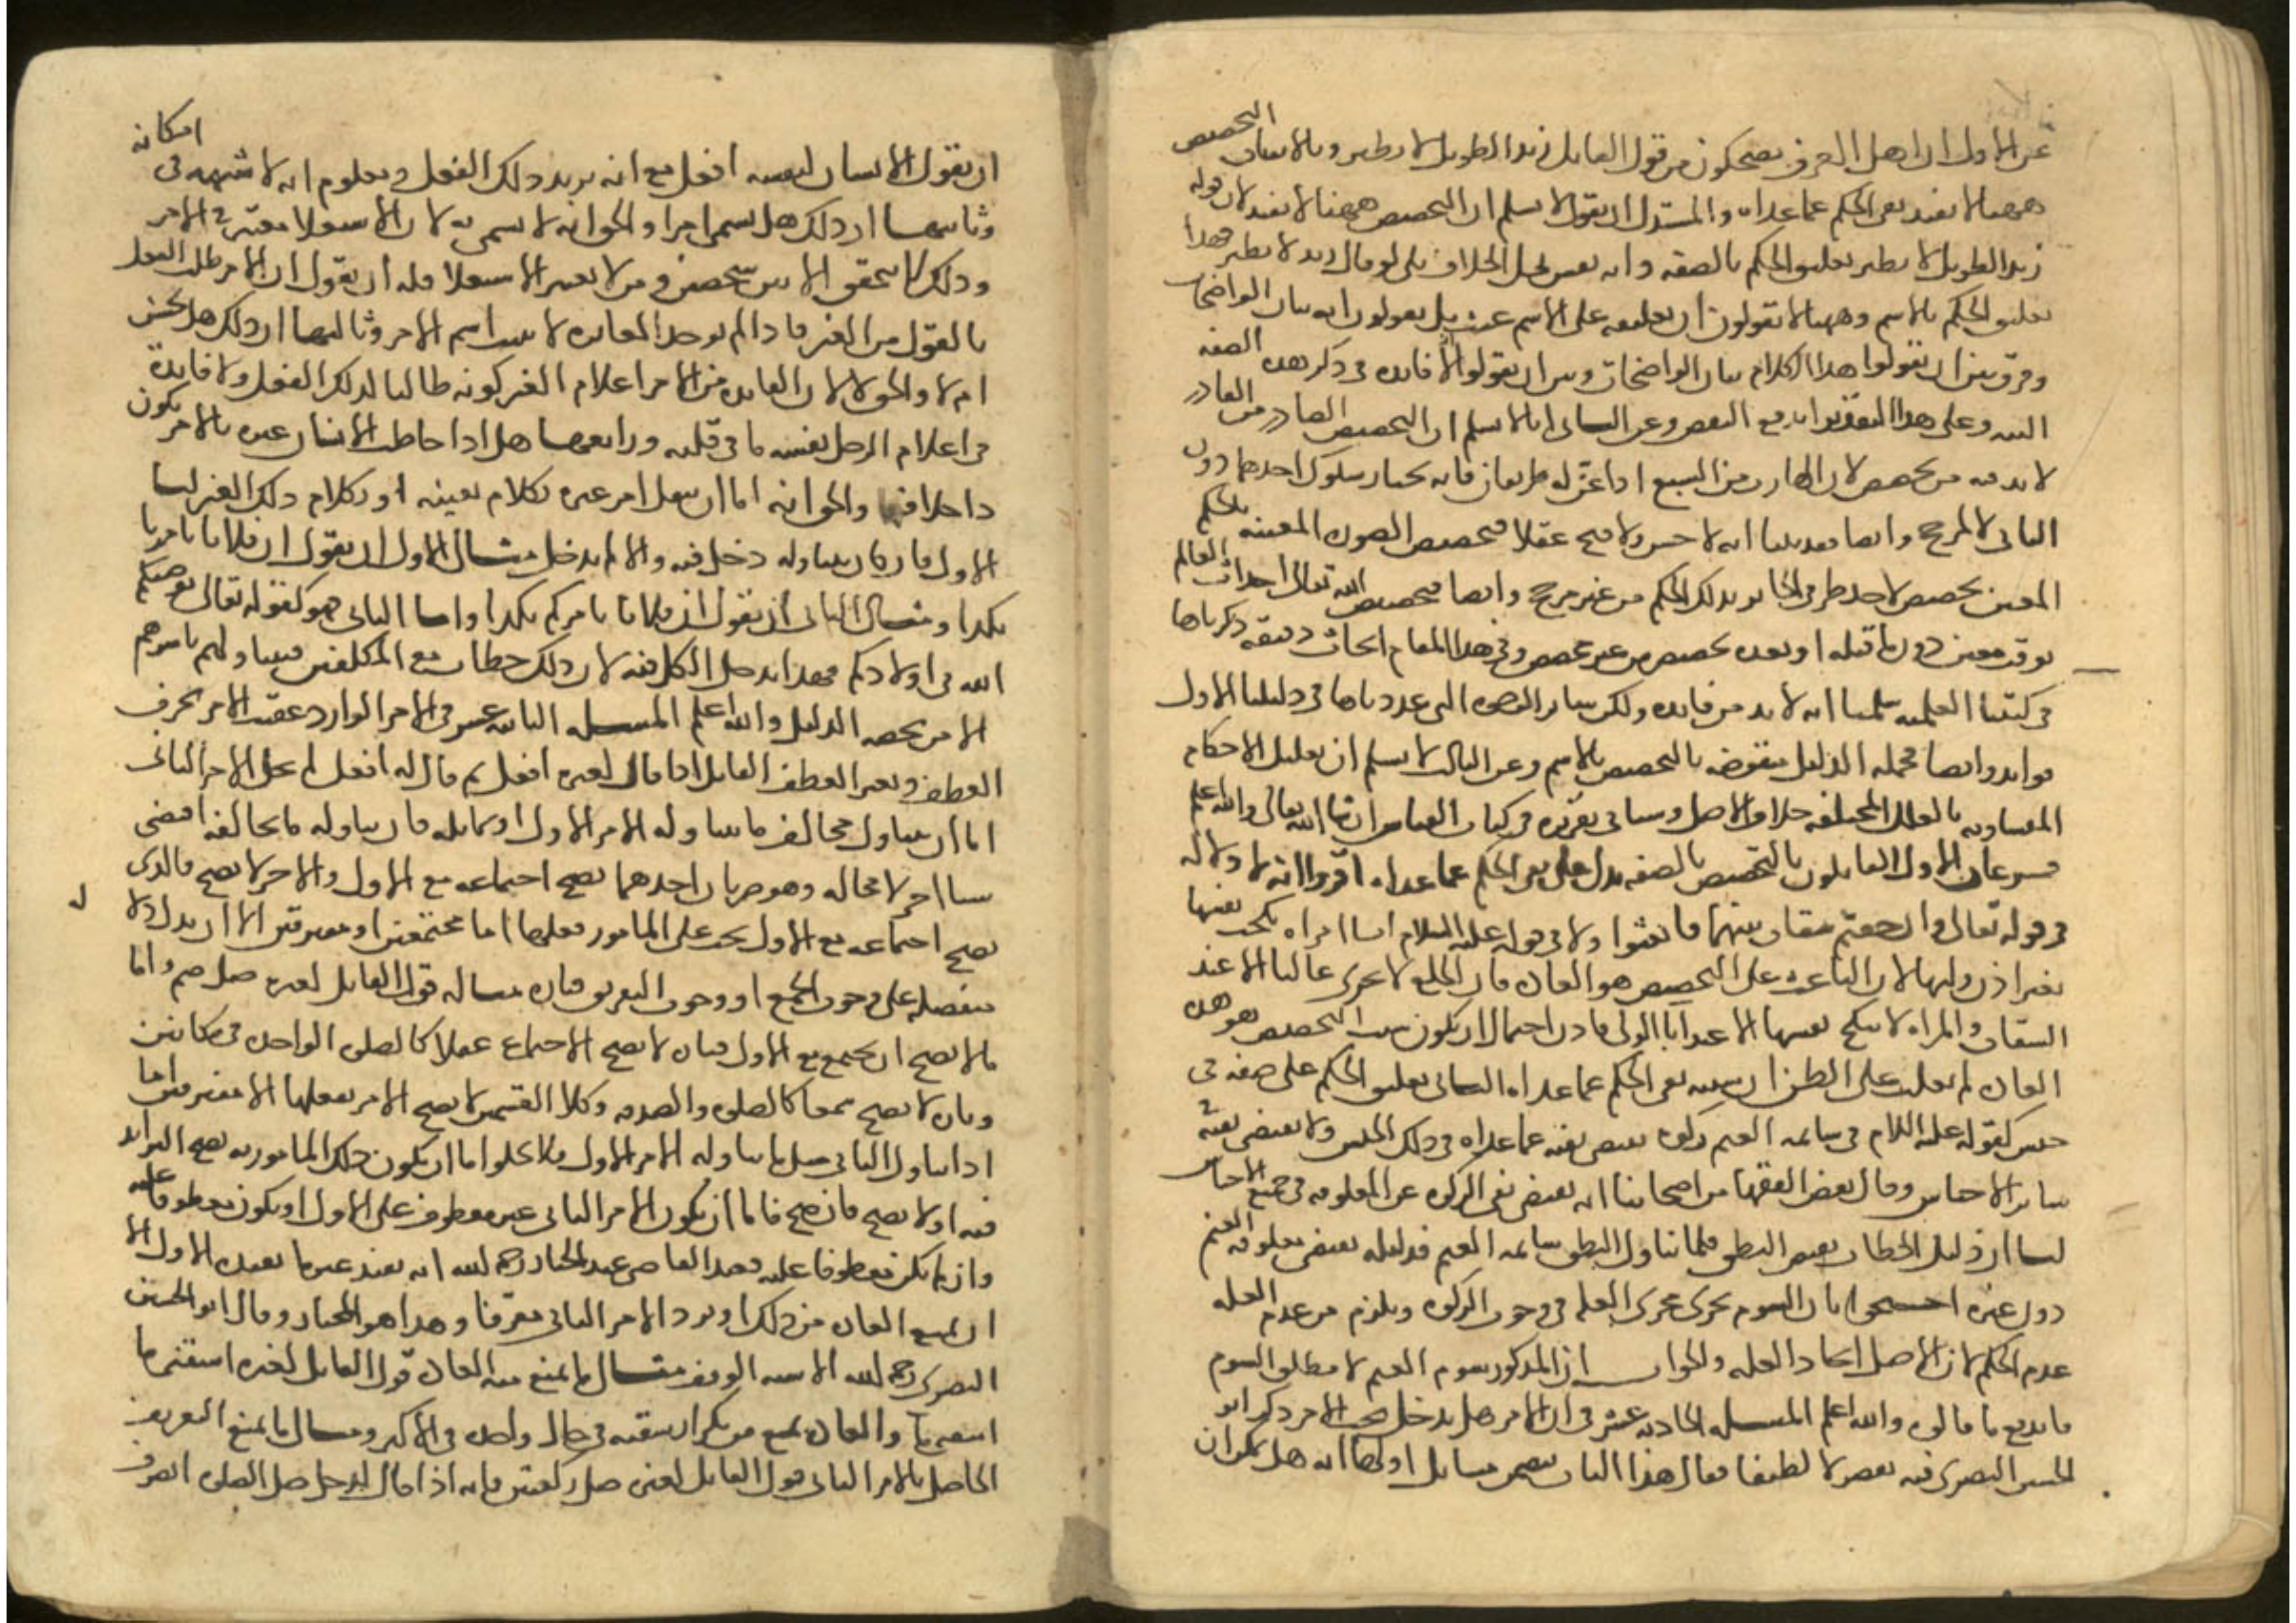 عن الاول ان اهل العرف يضحكون من قول القايل زيد الطويل لا يطير وبالاتفاق التخصيص
ههنا لا يفيد نفى الحكم عما عداه والمستدل ان يقول لا نسلم ان التخصيص ههنا لا يفيد لان قوله
زيد الطويل لا يطير تعليق الحكم بالصفه وانه نفس محل الخلاف بلى لو قال زيد لا يطير فهذا
تعليق الحكم بالاسم وههنا لا يقولون ان تعليقه على الاسم عبث بل يقولون انه بيان الواضحات
وفرق بين ان يقولوا هذا الكلام بيان الواضحات وبين ان يقولوا لا فايده فى ذكر هذه الصفه
البته وعلى هذا التقدير اندفع النقض وعن الثانى انا لا نسلم ان التخصيص الصادر من القادر
لا بد فيه من مخصص لان الهارب من السبع اذا عن له طريقان فانه يختار سلوك احدهما دون
الثانى لا لمرجح وايضا فقد بينا انه لا حسن ولا قبح عقلا فتخصيص الصوره المعينه بالحكم
المعين تخصيص لاحد طرفى الجايز بذلك الحكم من غير مرجح وايضا فتخصيص الله تعالى احداث العالم
بوقت معين دون ما قبله او بعده تخصيص من غير مخصص وفى هذا المقام ابحاث دقيقه ذكرناها
فى كتبنا العقليه سلمنا انه لا بد من فايده ولكن ساير الوجوه التى عددناها فى دليلنا الاول
فوايد وايضا فجمله الدليل منقوضه بالتخصيص بالاسم وعن الثالث لا نسلم ان تعليل الاحكام
المتساويه بالعلل المختلفه خلاف الاصل وسياتى تقريره فى كتاب القياس ان شا الله تعالى والله اعلم
فرعان الاول القايلون بان التخصيص بالصفه يدل على نفى الحكم عما عداه اقروا انه لا دلاله
فى قوله تعالى وان خفتم شقاق بينهما فابعثوا ولا فى قوله عليه السلام ايما امراه نكحت نفسها
بغير اذن وليها لان الباعث على التخصيص هو العاده فان الخلع لا يجرى غالبا الا عند
الشقاق والمراه لا تنكح نفسها الا عند ابا الولى فاذن احتمال ان يكون سبب التخصيص هو هذه
العاده لم يغلب على الظن ان سببه نفى الحكم عما عداه الثانى تعليق الحكم على صفه فى
جنس كقوله عليه السلام فى سايمه الغنم زكوه يقتضى نفيه عما عداه فى ذلك الجنس ولا يقتضى نفيه فى
ساير الاجناس وقال بعض الفقها من اصحابنا انه يقتضى نفى الزكوه عن المعلوفه فى جميع الاجناس
لنا ان دليل الخطاب نقيض النطق فلما تناول النطق سايمه الغنم فدليله يقتضى معلوفه الغنم
دون غيره احتجوا بان السوم يجرى مجرى العله فى وجوب الزكوه ويلزم من عدم العله
عدم الحكم لان الاصل اتحاد العله والجواب ان المذكور سوم الغنم لا مطلق السوم
فاندفع ما قالوه والله اعلم المسله الحاديه عشر فى ان الامر هل يدخل تحت الامر ذكر ابو
الحسين البصرى فيه تفصيلا لطيفا فقال هذا الباب يتضمن مسايل اولها انه هل يمكن ان
ان يقول الانسان لنفسه افعل مع انه يريد ذلك الفعل ومعلوم انه لا شبهه فى امكانه
وثانيها ان ذلك هل يسمى امرا والحق انه لا يسمى به لان الاستعلا معتبر فى الامر
وذلك لا يتحقق الا بين شخصين ومن لا يعتبر الاستعلا فله ان يقول ان الامر طلب الفعل
بالقول من الغير فاذا لم يوجد المغايره لا يثبت اسم الامر وثالثها ان ذلك هل يحسن
ام لا والحق لا لان الفايده من الامر اعلام الغير كونه طالبا لذلك الفعل ولا فايدة
فى اعلام الرجل نفسه ما فى قلبه ورابعها هل اذا خاطب الانسان غيره بالامر يكون
داخلا فيه والحق انه اما ان ينقل امر غيره بكلام نفسه او بكلام ذلك الغير اما
الاول فان كان يتناوله دخل فيه والا لم يدخل مثال الاول ان يقول ان فلانا يامرنا
بكذا ومثال الثانى ان يقول ان فلانا يامركم بكذا واما الثانى فهو كقوله تعالى يوصيكم
الله فى اولادكم فهذا يدخل الكل فيه لان ذلك خطاب مع المكلفين فيتناولهم باسرهم
الا من يخصه الدليل والله اعلم المسله الثانيه عشر فى الامر الوارد عقيب الامر بحرف
العطف وبغير العطف القايل اذا قال لغيره افعل ثم قال له افعل لم يخل الامر الثانى
اما ان يتناول مخالف ما يتناوله الامر الاول او يماثله فان تناوله ما يخالفه اقتضى
شيا اخر لا محاله وهو ضربان احدهما يصح اجتماعه مع الاول والاخر لا يصح فالذى
يصح اجتماعه مع الاول يجب على المامور فعلهما اما مجتمعين او مفترقين الا ان يدل دلاله
منفصله على وجوب الجمع او وجوب التفريق فان مثاله قول القايل لغيره صل صم واما
ما لا يصح ان يجتمع مع الاول فتاره لا يصح الاجتماع عقلا كالصلوه الواحده فى مكانين
وتاره لا يصح سمعا كالصلوه والصدقه وكلا القسمين لا يصح الامر بفعلهما الا مفترقين اما
اذا تناول الثانى مثل ما تناوله الامر الاول فلا يخلوا اما ان يكون ذلك المامور به يصح التزايد
فيه او لا يصح فان صح فاما ان يكون الامر الثانى غير معطوف على الاول او يكون معطوفا عليه
وان لم يكن معطوفا عليه فعند القاضى عبد الجبار رحمه الله انه يفيد غير ما يفيده الاول الا
ان تمنع العاده من ذلك او يرد الامر الثانى معرفا وهذا هو المختار وقال ابو الحسين
البصرى رحمه الله الاشبه الوقف مثال ما تمنع منه العاده قول القايل لغيره اسقنى ما
اسقنى ما والعاده تمنع من تكرار سقيه فى حال واحده فى الاكثر ومثال ما يمنع التعريف
الحاصل بالامر الثانى قول القايل لغيره صل ركعتين فانه اذا قال للرجل صل الصلوه انصرف